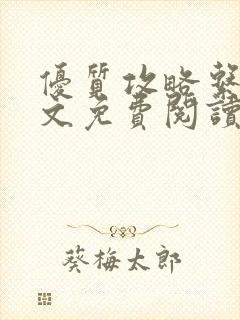 優質攻略系
文免費閱讀
葵梅太郎